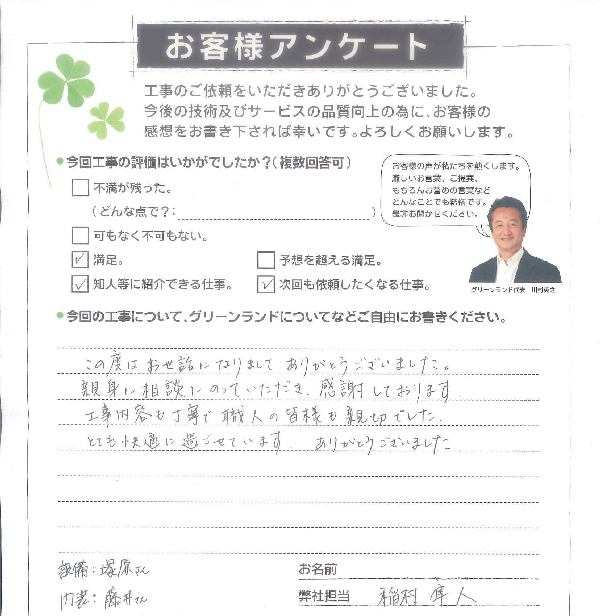 お客様アンケート
工事のご依頼をいただきありがとうございました。
今後の技術及びサービスの品質向上の為に、お客様の
感想をお書き下されば幸いです。よろしくお願いします。
●今回工事の評価はいかがでしたか?(複数回答可)
□ 不満が残った。
(どんな点で?: )
□ 可もなく不可もない。
☑ 満足。 □ 予想を超える満足。
☑ 知人等に紹介できる仕事。 ☑ 次回も依頼したくなる仕事。
お客様の声が私たちを動くします。
厳しいお言葉、ご提案、
もちろんお褒めの言葉など
どんなことでも結構です。
是非お聞かせください。
グリーンランド代表
●今回の工事について、グリーンランドについてなどご自由にお書きください。
この度はお世話になりまして ありがとうございました。
親身に相談にのっていただき、感謝しております
工事内容も丁寧で 職人の皆様も親切でした。
とても快適に過ごせています。 ありがとうございました
設備:塚原さん
内装:藤井さん
お名前
弊社担当 稲村 隼人